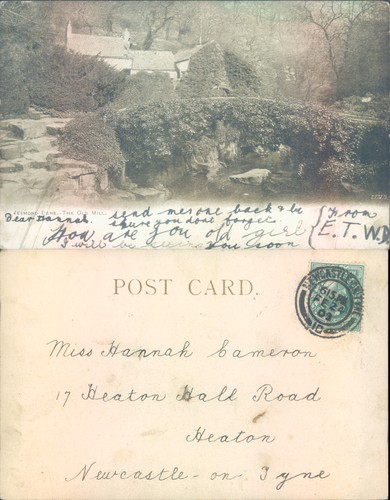 Jesmond Dene - The Old Mill.
Dear Hannah. send me one back & be
sure you dont forget.
How are you old girl
I will be you soon
{From
E. T. W.
POST CARD.
NEWCASTLE ON TYNE
Miss Hannah Cameron
17 Heaton Hall Road
Heaton
Newcastle-on Tyne